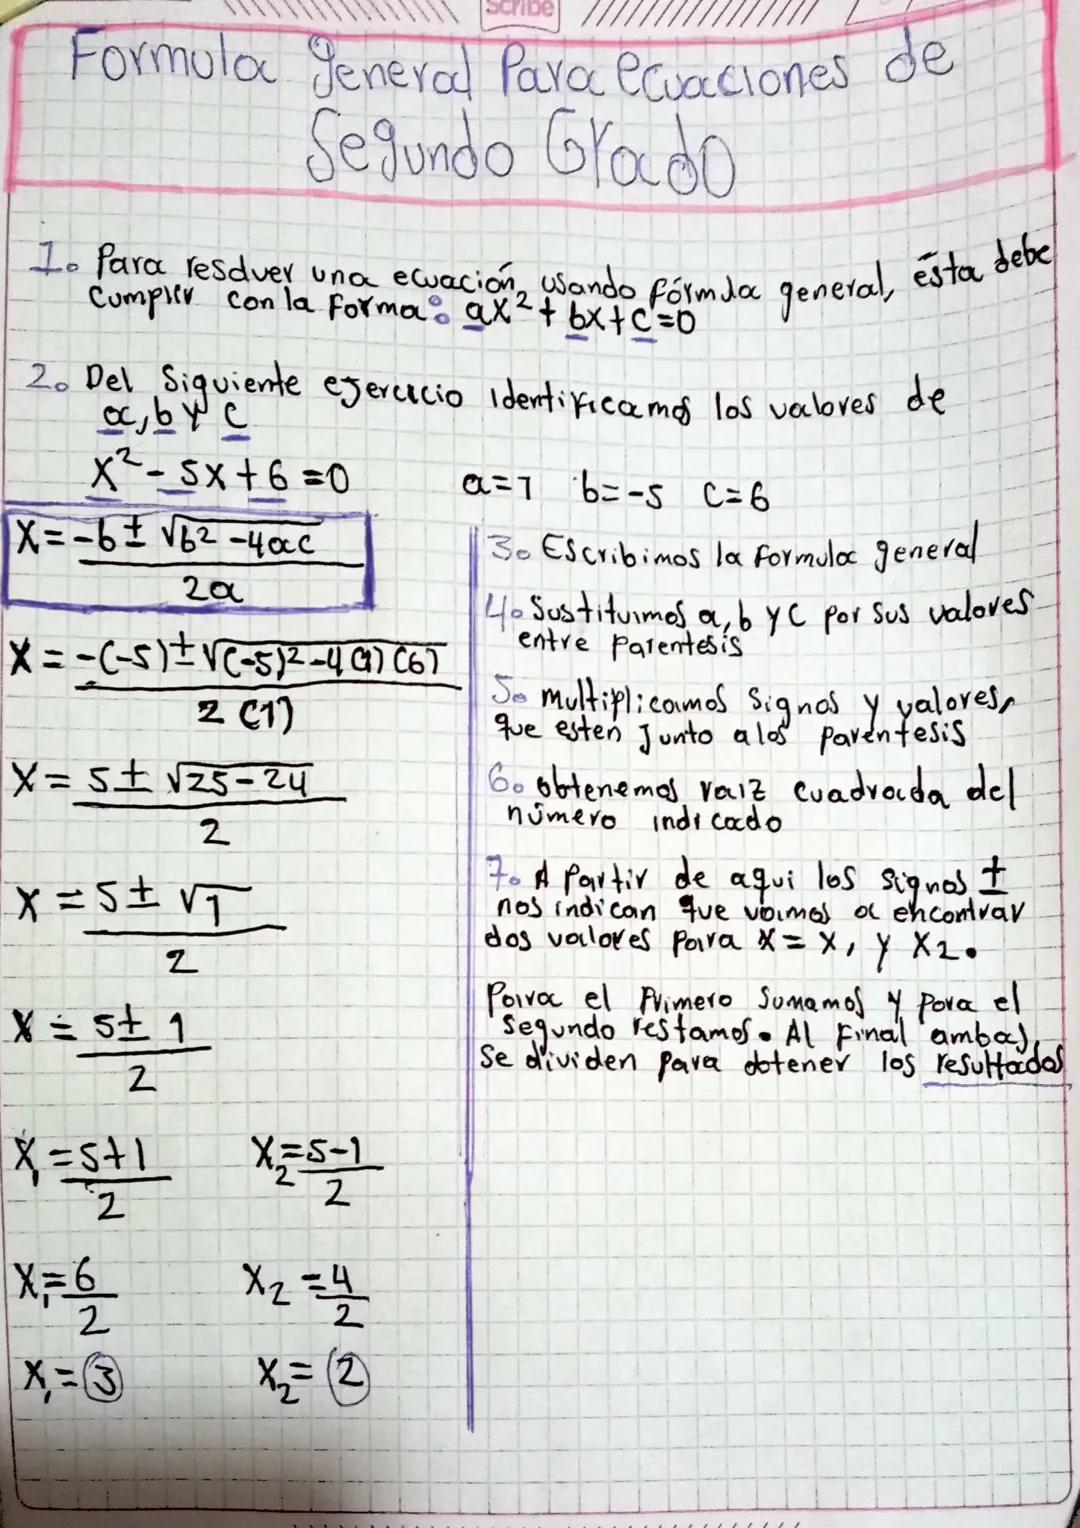 Scribe
Formula general Para ecuaciones de
Segundo Grado
1. Para resolver una ecuación, usando fórmula general, ésta debe
cumplir con la forma: ax²+bx+c=0
2. Del Siguiente ejercicio identificamos los valores de
a, b y c
x²-5x+6=0
a=1 b=-5 c=6
x=-b±√b²-4ac
2a
x=-(-5)±√(-5)²-4(1)(6)
2(1)
x=5±√25-24
2
x=5±√1
2
x=5±1
2
x₁=5+1 x₂=5-1
2 2
x₁=6 x₂=4
2 2
x₁=3 x₂=2
3. Escribimos la formula general
4. Sustituimos a, b y C por sus valores
entre parentesis
5. multiplicamos Signos y valores,
que esten junto a los paréntesis
6. obtenemos raiz cuadrada del
número indicado
7. A partir de aqui los signos ±
nos indican que vaimos a encontrar
dos valores para x=x₁ y x2.
Para el Primero Sumamos y para el
Segundo restamos. Al Final ambas,
Se dividen para obtener los resultados